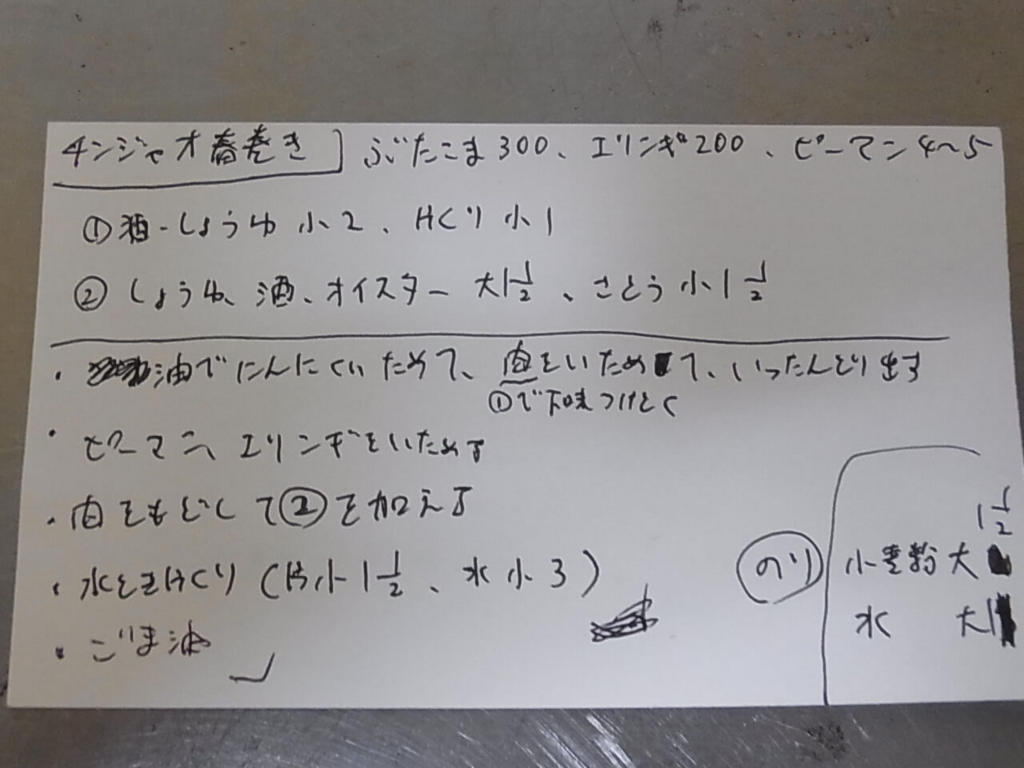 チンジャオ春巻き ぶたこま300、エリンギ200、ピーマン4〜5
①酒・しょうゆ 小2、片くり 小1
②しょうゆ、酒、オイスター 大1 1/2、さとう 小1 1/2
・油でにんにくいためて、肉をいためて、いったんとり出す
①で下味つけとく
・ピーマン、エリンギをいためる
・肉をもどして②を加える
・水とき片くり(片小1 1/2、水 小3)
・ごま油
のり
小麦粉 大1 1/2
水 大1